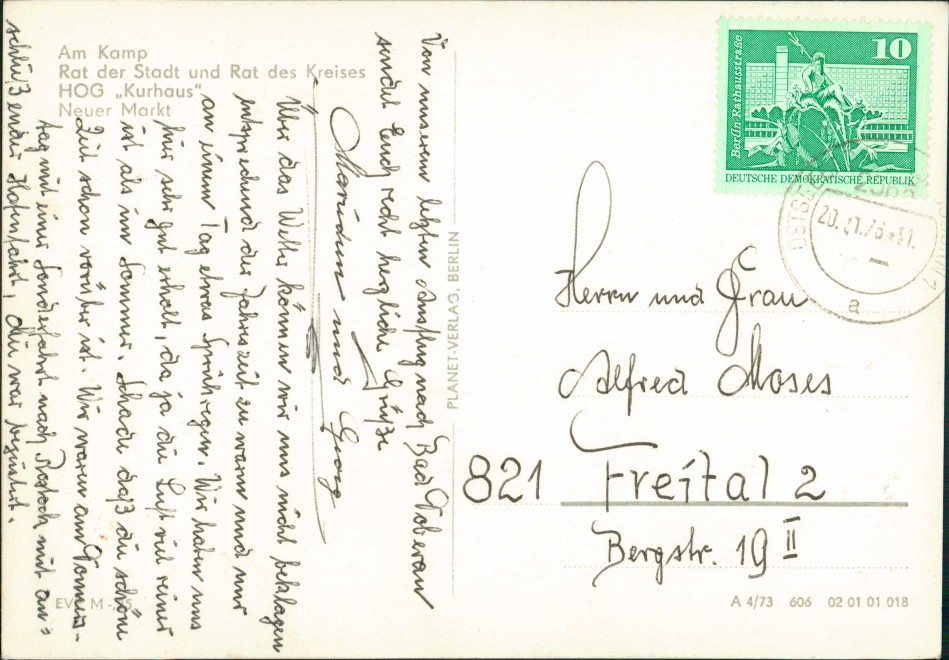 Am Kamp
Rat der Stadt und Rat des Kreises
HOG „Kurhaus"
Neuer Markt
Von unserem letzten Ausflug nach Bad Doberan
sendet Euch recht herzliche Grüße
und Georg
Über das Wetter können wir uns nicht beklagen
entsprechend der Jahreszeit zu warm und nur
an einem Tag etwas Sprühregen. Wir haben uns
hier sehr gut erholt, da ja die Luft viel reiner
ist als im Sommer. Schade daß die schöne
Zeit schon vorüber ist. Wir waren am Donners-
tag mit einer Sonderfahrt nach Rostock mit an-
schließender Hafenfahrt, die war
PLANET-VERLAG, BERLIN
10
Berlin-Rathausstraße
DEUTSCHE DEMOKRATISCHE REPUBLIK
OSTSEE
20. 11.
a
Herrn und Frau
Alfred Moses
821 Freital 2
Bergstr. 19 II
A 4/73 606 02 01 01 018